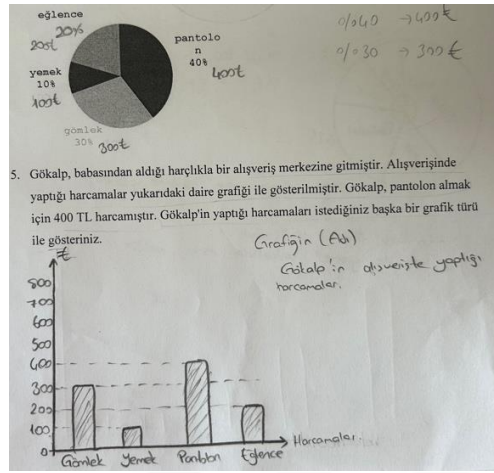 eğlence
20%
20st
yemek
10%
100₺
gömlek
30%
300₺
pantolo
n
40%
400₺
%40 → 400₺
%30 → 300₺
5. Gökalp, babasından aldığı harçlıkla bir alışveriş merkezine gitmiştir. Alışverişinde
yaptığı harcamalar yukarıdaki daire grafiği ile gösterilmiştir. Gökalp, pantolon almak
için 400 TL harcamıştır. Gökalp'in yaptığı harcamaları istediğiniz başka bir grafik türü
ile gösteriniz.
Grafiğin (Adı)
Gökalp'in alışverişte yaptığı
harcamalar.
₺
800
700
600
500
400
300
200
100
0
Gömlek Yemek Pantolon Eğlence
Harcamalar.